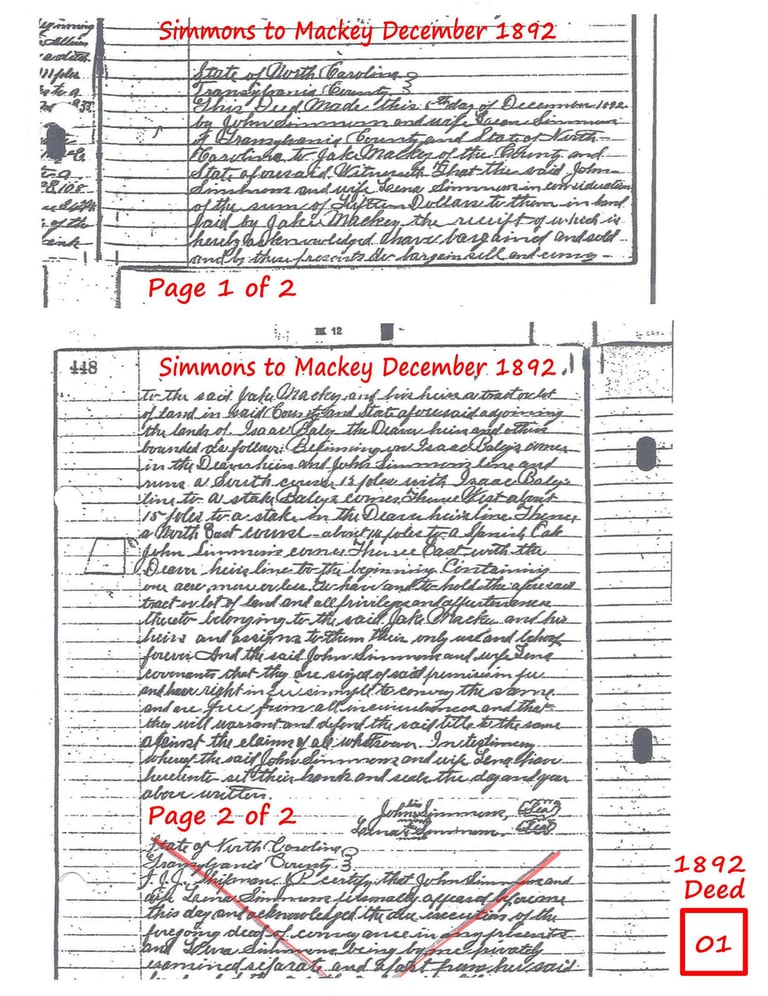 Simmons to Mackey December 1892
State of North Carolina
Transylvania County
This Deed Made this 6th day of December 1892
by John Simmons and wife Simmons
of Transylvania County and State of North
Carolina to Jake Mackey of the County and
State aforesaid Witnesseth That the said John
Simmons and wife Lena Simmons in consideration
of the sum of Fifteen Dollars to them in hand
paid by Jake Mackey the receipt of which is
hereby acknowledged have bargained and sold
and by these presents do bargain sell and convey
Page 1 of 2
12
448
Simmons to Mackey December 1892
to the said Jake Mackey and his heirs a tract or lot
of land in said County and State aforesaid adjoining
the lands of Isaac Baley the Deaver heirs and others
bounded as follows: Beginning on Isaac Baley's corner
in the Deaver heirs and John Simmons line and
runs a South course 15 poles with Isaac Baley
line to a stake Baley's corner Thence West about
15 poles to a stake in the Deaver heirs line Thence
a North East course about poles to a Spanish Oak
John Simmons corner Thence East with the
Deaver heirs line to the beginning Containing
one acre more or less. To have and to hold the aforesaid
tract or lot of land and all privileges and appurtenances
thereto belonging to the said Jake Mackey and his
heirs and assigns to them their only use and behoof
forever And the said John Simmons and wife Lena
covenants that they are seized of said premises in fee
and have right in fee simple to convey the same
and are free from all incumbrances and that
they will warrant and defend the said title to the same
against the claims of all whatsoever. In testimony
whereof the said John Simmons and wife Lena have
hereunto set their hands and seals the day and year
above written.
Page 2 of 2
John Simmons, (Seal)
Lena Simmons, (Seal)
State of North Carolina
Transylvania County
I J.J. Shipman certify that John Simmons and
wife Lena Simmons personally appeared before me
this day and acknowledged the due execution of the
foregoing deed of conveyance
and Lena Simmons being by me privately
examined separate and apart from her said
1892
Deed
01